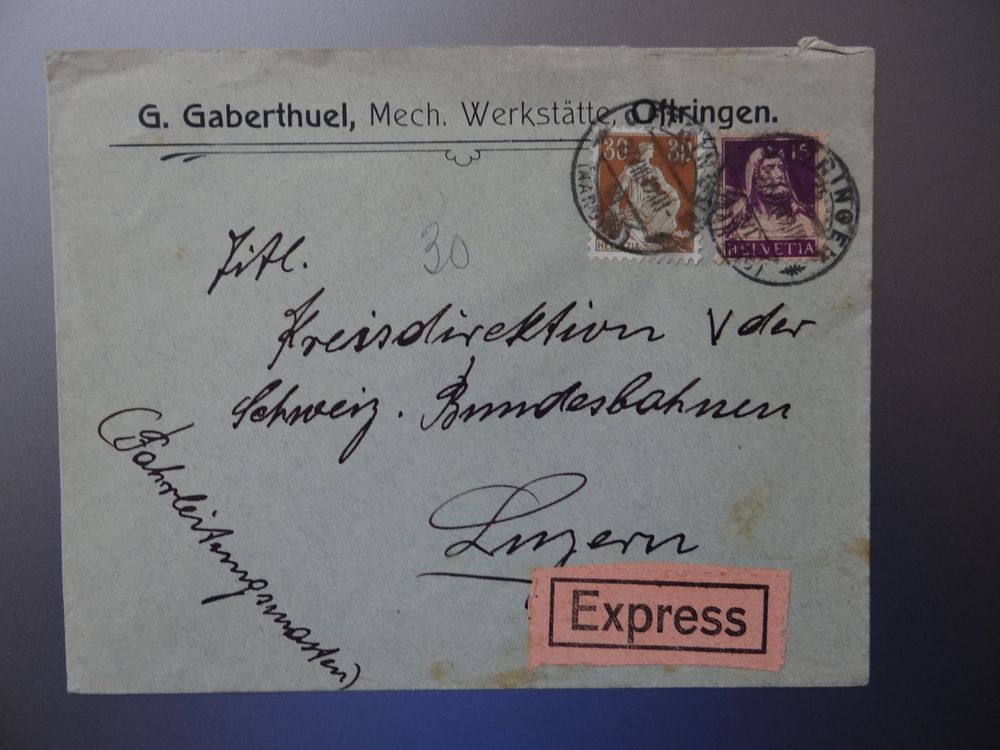 G. Gaberthuel, Mech. Werkstätte, Oftringen.
30 30
HELVETIA
15
HELVETIA
30
Titl.
Kreisdirektion V der
Schweiz. Bundesbahnen
Luzern
(Fahrleitungsmasten)
Express